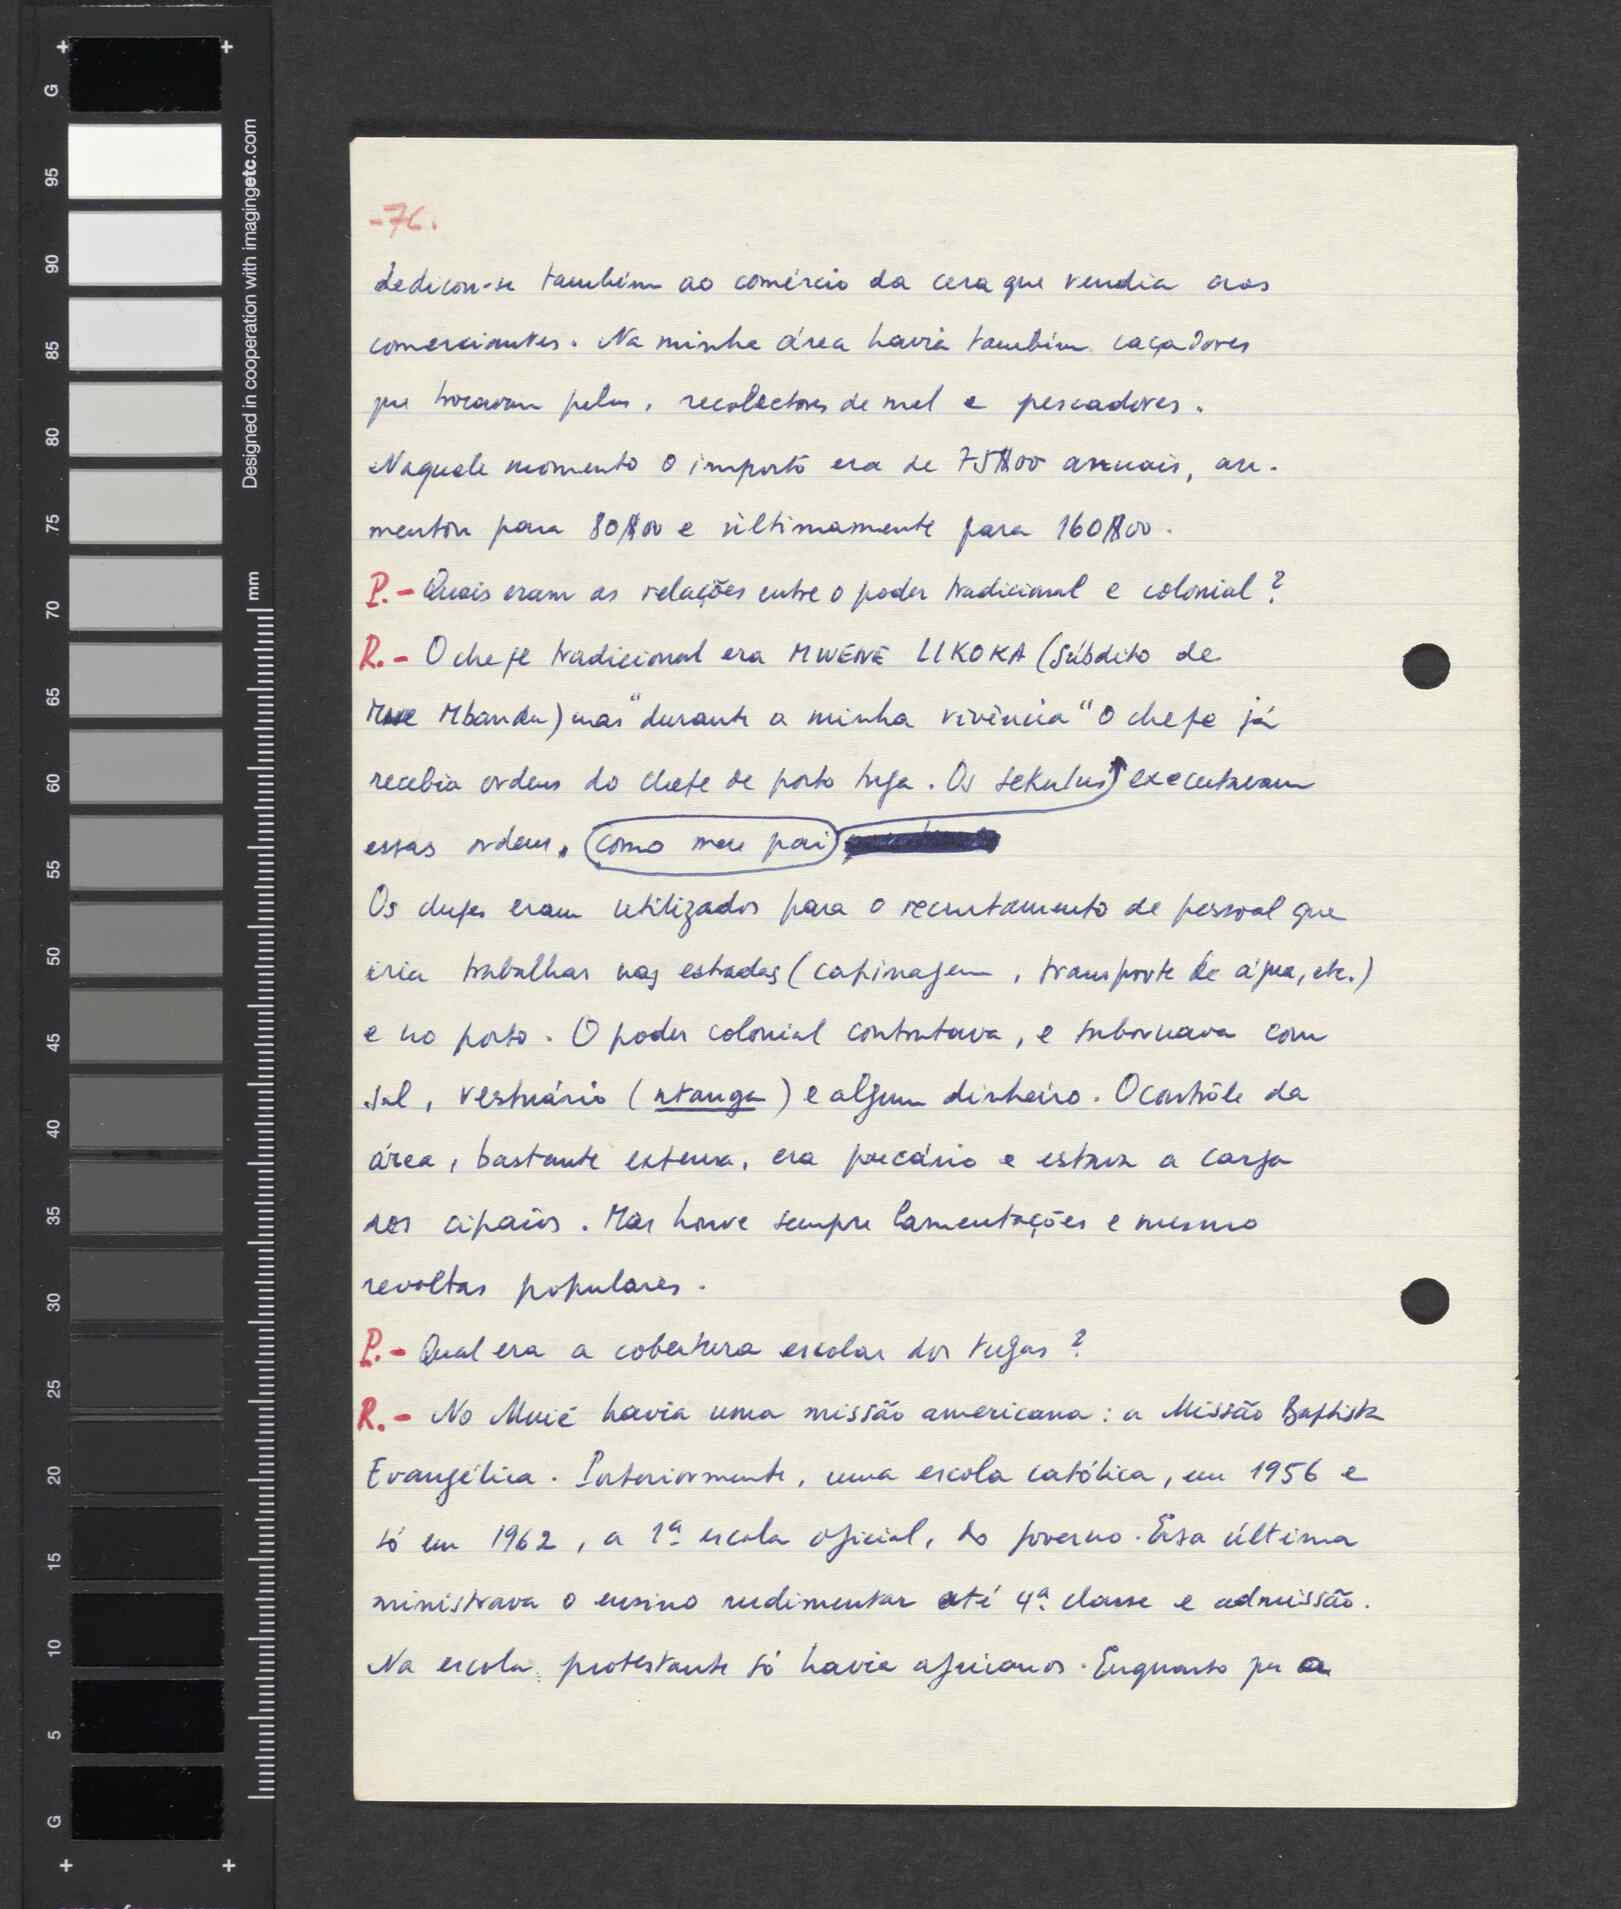 -76.
dedicou-se também ao comércio da cera que vendia aos
comerciantes. Na minha área havia também caçadores
que trocavam peles, recolectores de mel e pescadores.
Naquele momento o imposto era de 75$00 anuais, au-
mentou para 80$00 e ùltimamente para 160$00.
P.- Quais eram as relações entre o poder tradicional e colonial?
R.- O chefe tradicional era MWENE LIKOKA (súbdito de
Mwe Mbandu) mas "durante a minha vivência" o chefe já
recebia ordens do chefe de posto tuga. Os sekulus executavam
essas ordens. como meu pai
Os chefes eram utilizados para o recrutamento de pessoal que
iria trabalhar nas estradas (capinagem, transporte de água, etc.)
e no posto. O poder colonial contratava, e subornava com
sal, vestuário (ntanga) e algum dinheiro. O contrôle da
área, bastante extensa, era precário e estava a cargo
dos cipaios. Mas houve sempre lamentações e mesmo
revoltas populares.
P.- Qual era a cobertura escolar dos tugas?
R.- No Muié havia uma missão americana: a Missão Baptista
Evangélica. Posteriormente, uma escola católica, em 1956 e
só em 1962, a 1ª escola oficial, do governo. Essa última
ministrava o ensino rudimentar até 4ª classe e admissão.
Na escola protestante só havia africanos. Enquanto que a
Designed in cooperation with imagingetc.com
mm
G
95
90
85
80
75
70
65
60
55
50
45
40
35
30
25
20
15
10
5
G